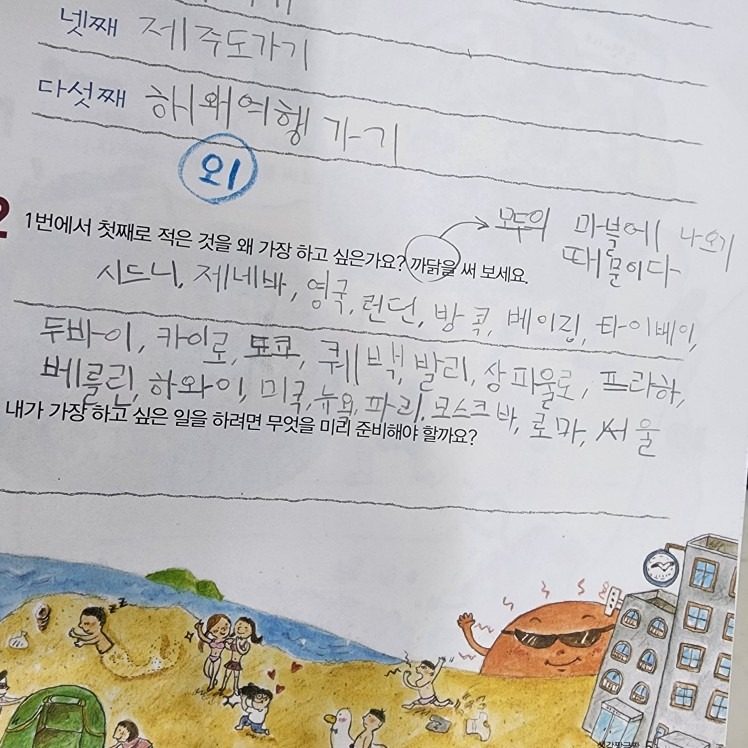 넷째 제주도가기
다섯째 해왜여행 가기
외
2 1번에서 첫째로 적은 것을 왜 가장 하고 싶은가요? 까닭을 써 보세요.
모두의 마블에 나오기
때문이다
시드니, 제네바, 영국, 런던, 방콕, 베이징, 타이베이,
두바이, 카이로, 도쿄, 퀘백, 발리, 상파울로, 프라하,
베를린, 하와이, 미국, 뉴욕, 파리, 모스크바, 로마, 서울
내가 가장 하고 싶은 일을 하려면 무엇을 미리 준비해야 할까요?
zz